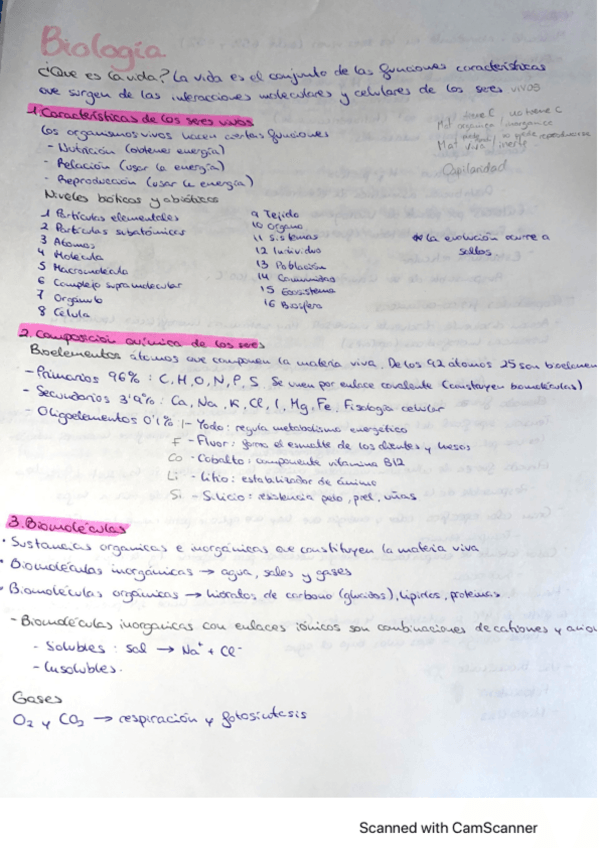 Biología
¿Que es la vida? La vida es el conjunto de las funciones características
que surgen de las interacciones moleculares y celulares de los seres vivos
1. Características de los seres vivos
Los organismos vivos hacen ciertas funciones
- Nutrición (obtener energía)
- Relación (usar la energía)
- Reproducción (usar la energía)
Mat orgánica / inorgánica
Mat viva / inerte
Capilaridad
Niveles bióticos y abióticos
1 Partículas elementales
2 Partículas subatómicas
3 Átomos
4 Molécula
5 Macromolécula
6 Complejo supramolecular
7 Orgánulo
8 Célula
9 Tejido
10 Órgano
11 Sistemas
12 Individuo
13 Población
14 Comunidad
15 Ecosistema
16 Biosfera
* La evolución ocurre a
saltos
2. Composición química de los seres
Bioelementos átomos que componen la materia viva. De los 92 átomos 25 son bioelemen
- Primarios 96% : C, H, O, N, P, S Se unen por enlace covalente (constituyen biomoléculas)
- Secundarios 3'9% : Ca, Na, K, Cl, I, Mg, Fe. Fisología celular
- Oligoelementos 0'1% : I - Yodo: regula metabolismo energético
F - Fluor: forma el esmalte de los dientes y huesos
Co - Cobalto: componente vitamina B12
Li - Litio: estabilizador de ánimo
Si - Silicio: resistencia pelo, piel, uñas
3. Biomoléculas
· Sustancias organicas e inorgánicas que constituyen la materia viva
· Biomoléculas inorgánicas → agua, sales y gases
· Biomoléculas orgánicas → hidratos de carbono (glúcidos), lípidos, proteínas
- Biomoléculas inorganicas con enlaces iónicos son combinaciones de cationes y anion
- Solubles : sal → Na⁺ + Cl⁻
- Insolubles.
Gases
O₂ y CO₂ → respiración y fotosíntesis
Scanned with CamScanner